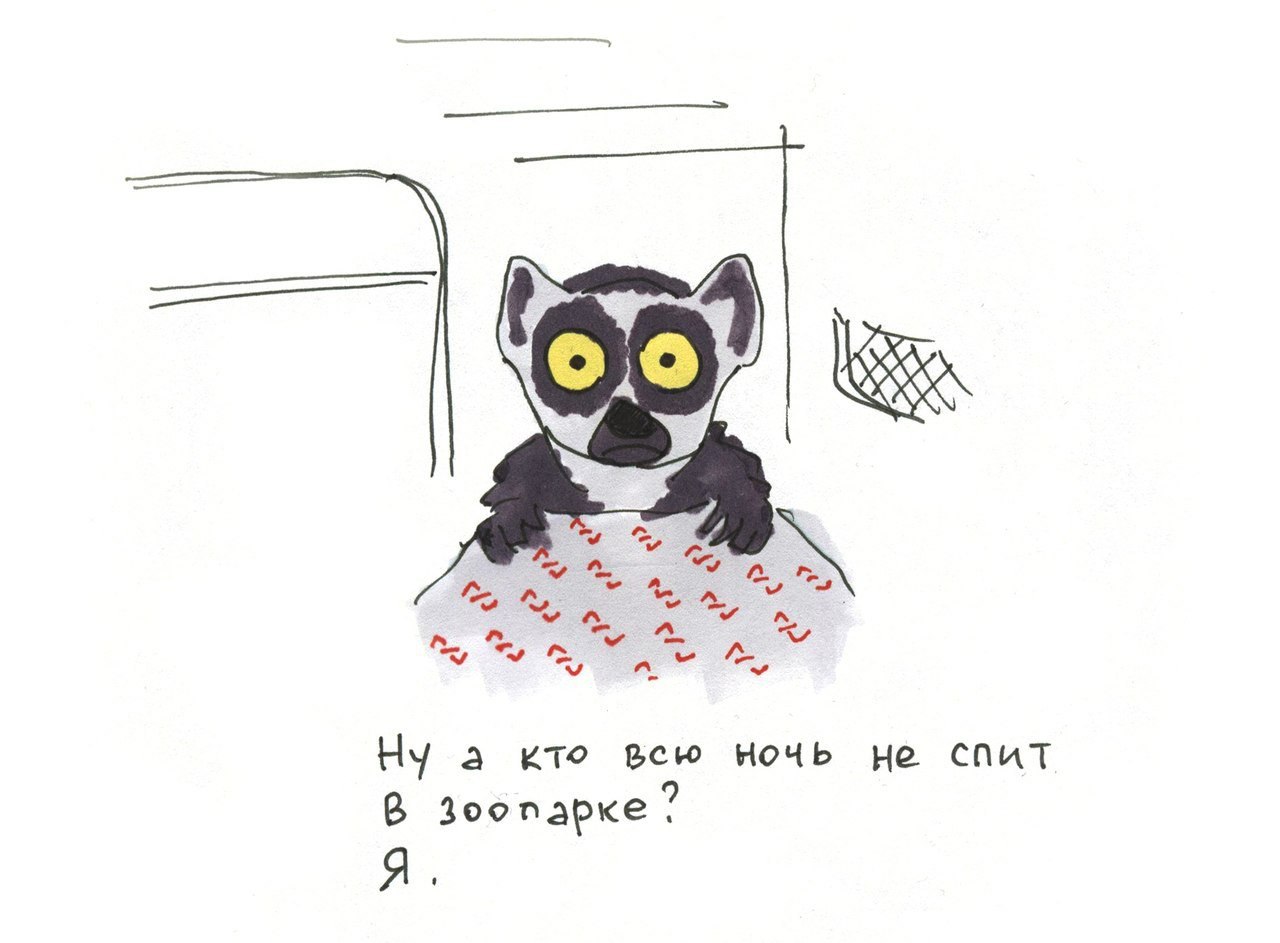 Ну а кто всю ночь не спит
в зоопарке?
Я.